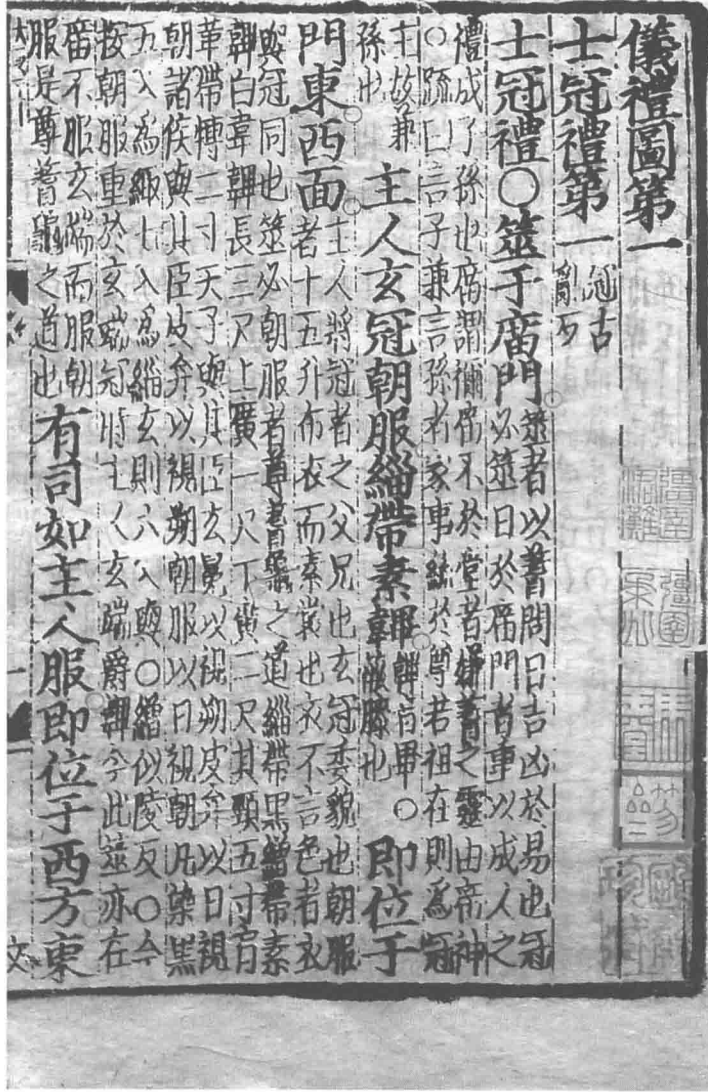 儀禮圖第一
士冠禮第一
冠古
亂反
士冠禮○筮于庿門
筮者以蓍問日吉凶於易也冠
必筮日於庿門者重以成人之
禮成子孫也庿謂禰庿不於堂者嫌蓍之靈由庿神
○疏曰言子兼言孫者家事統於尊若祖在則爲冠
主故兼
孫也
主人玄冠朝服緇帶素韠
韠音畢○
蔽膝也
即位于
門東西面
主人將冠者之父兄也玄冠委貌也朝服
者十五升布衣而素裳也衣不言色者衣
與冠同也筮必朝服者尊蓍龜之道緇帶黑繒帶素
韠白韋韠長三尺上廣一尺下廣二尺其頸五寸肩
革帶博二寸天子與其臣玄冕以視朔皮弁以日視
朝諸侯與其臣皮弁以視朔朝服以日視朝凡染黑
五入爲緅七入爲緇玄則六入與○繒似陵反○今
按朝服重於玄端冠時主人玄端爵韠今此筮亦在
庿不服玄端而服朝
服是尊蓍龜之道也
有司如主人服即位于西方東